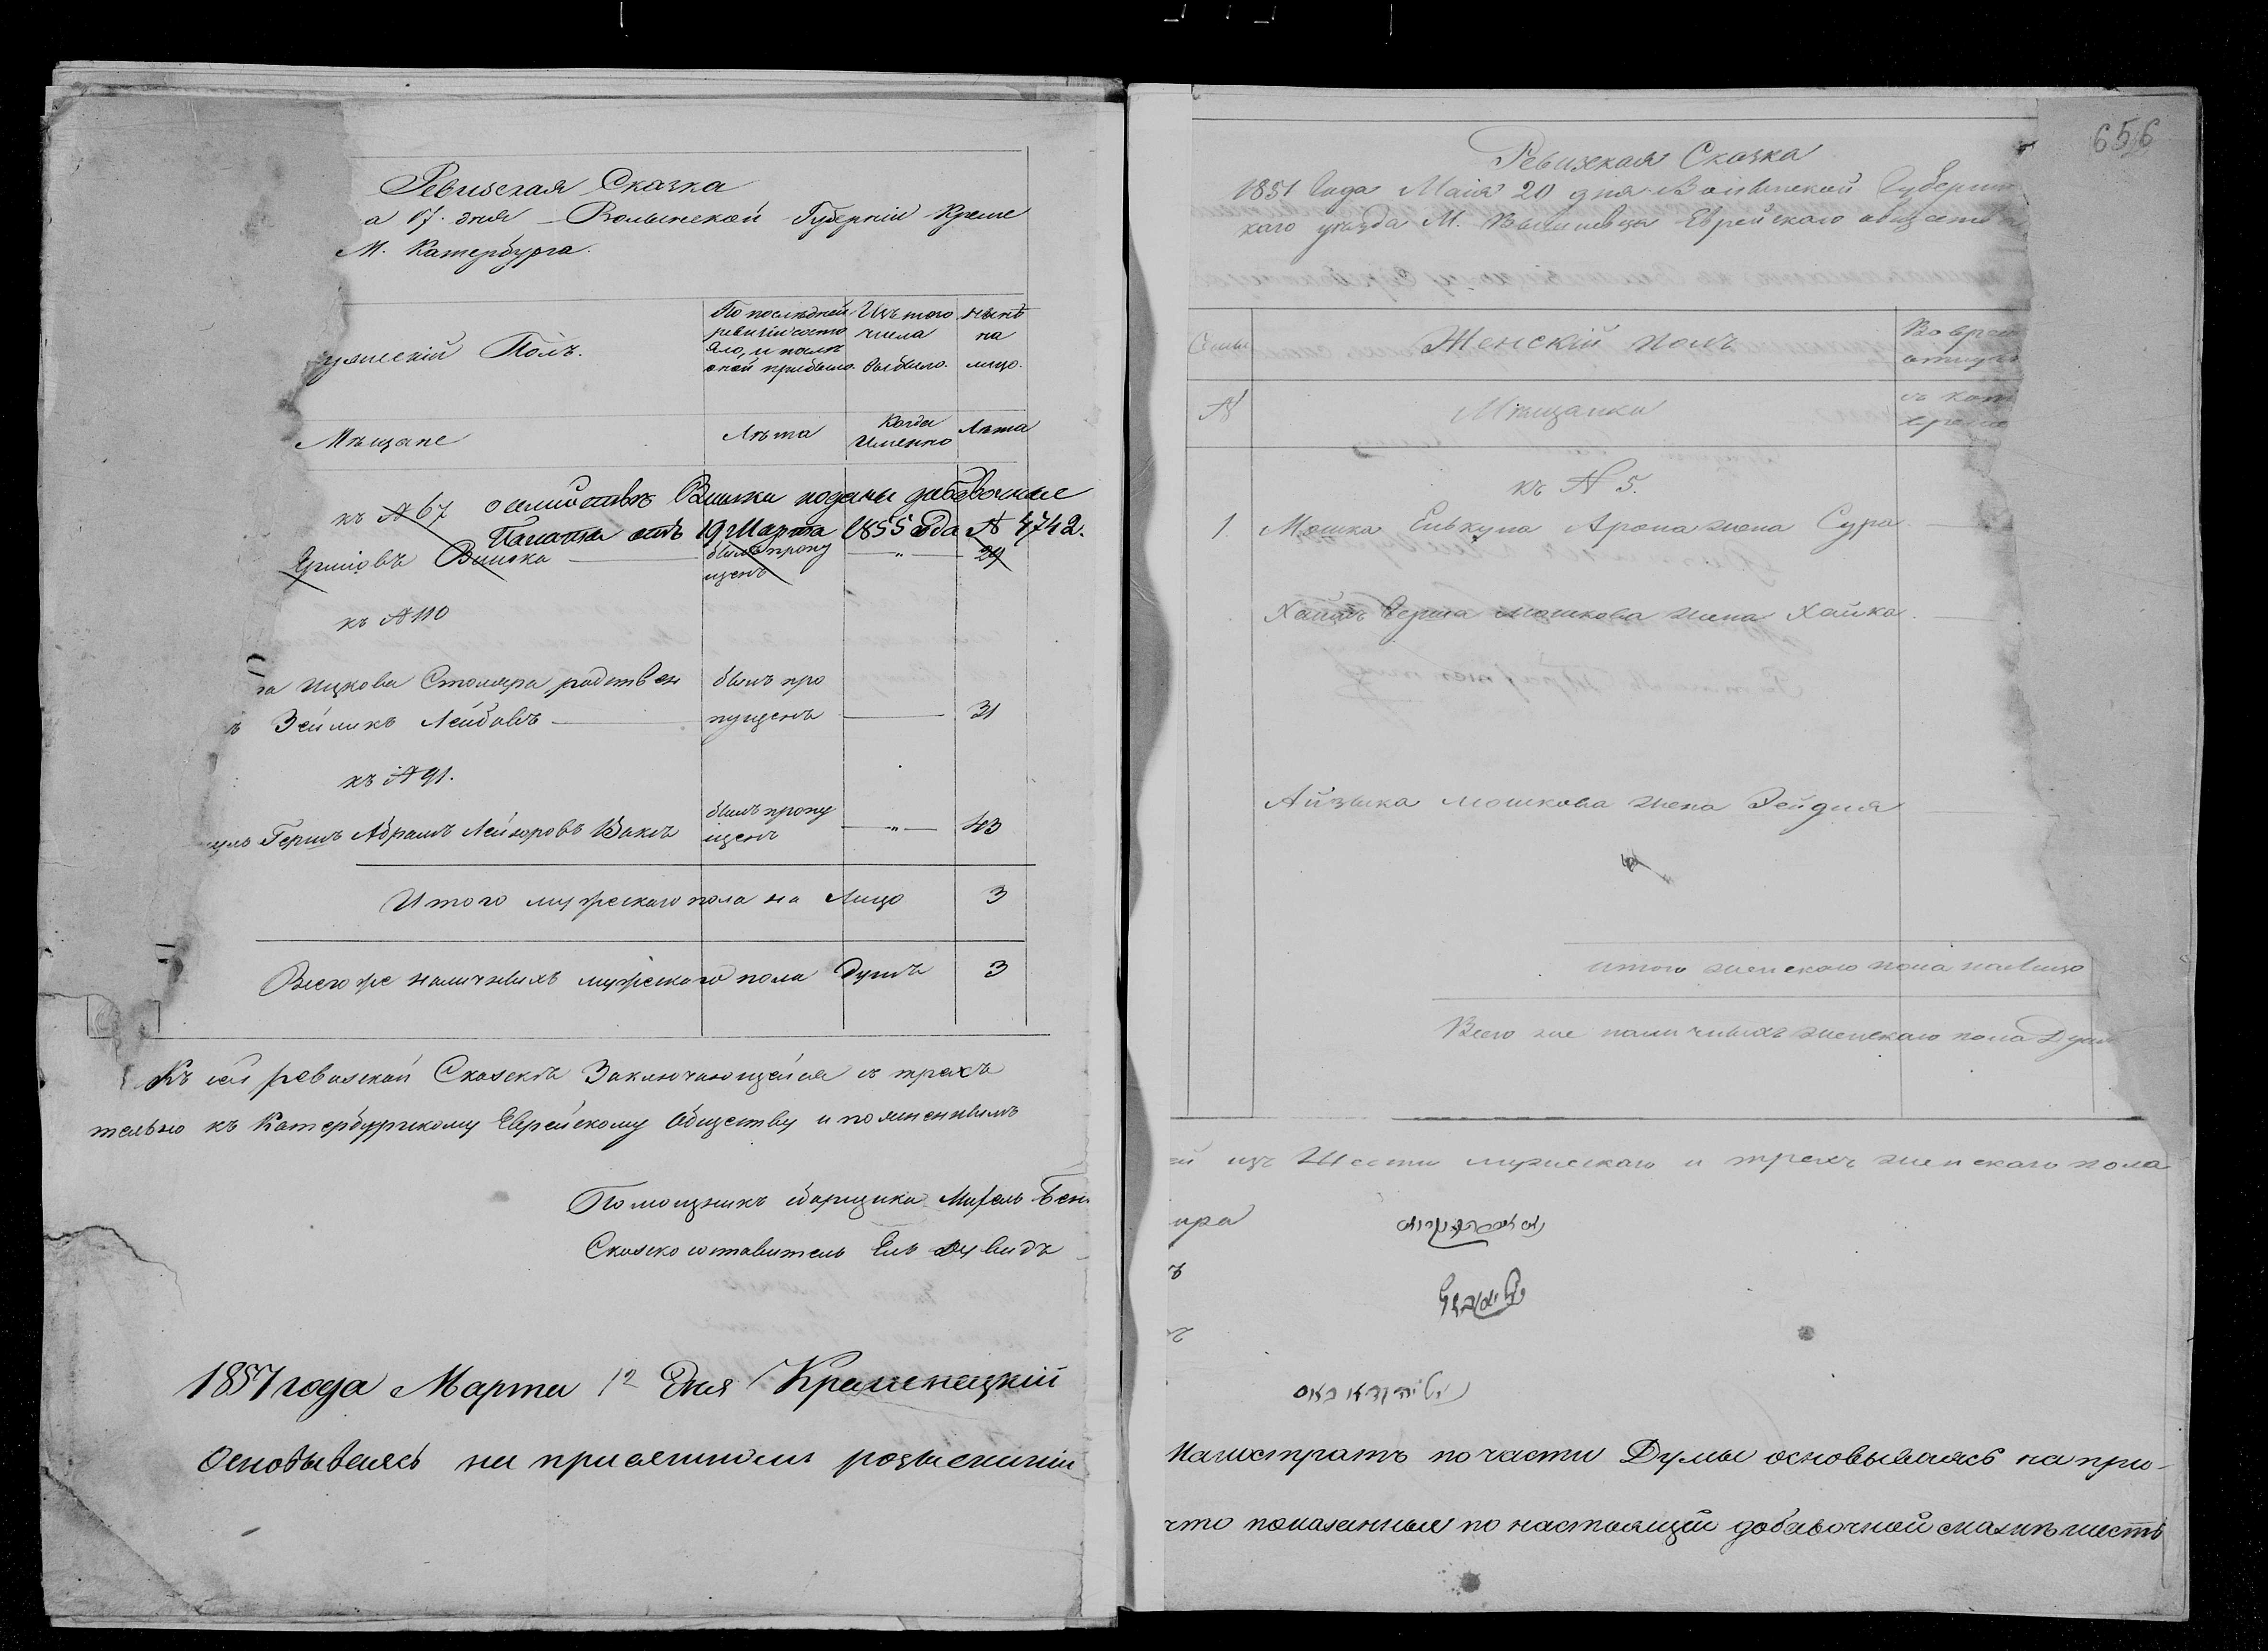 Ревизская Сказка
а 17. дня – Волынской Губерніи Креме
М. Катербурга.
По последней Изъ того ныне
ревизіи состо числа на
ужескій Полъ. яло, и после
оной прибыло. выбыло. лицо.
Мещане Лета Когда Именно Лета
къ № 67 Вашки поданы добавочные
Палаты отъ 19 Марта 1855 года № 4742.
былъ пропу щенъ " 29
къ № 110
ицкова Столяра родствен былъ про
ъ Зейликъ Лейбовъ пущенъ 31
къ № 91.
Гершъ Абрамъ Лейзоровъ былъ пропу щенъ " 43
Итого мужескаго пола на лицо 3
Всего же наличныхъ мужескаго пола душъ 3
Къ сей ревизской Сказке Заключающейся въ трехъ
тельно къ Катербургскому Еврейскому Обществу и
Помощникъ сборщика Бен
Сказкосоставитель Дувидъ
1857 года Марта 12 Дня Кременецкій
Основываясь на присяжномъ
656
Ревизская Сказка
1851 Года Маія 20 дня Волынской Губерніи
каго уезда М. Вышневца Еврейскаго общества
Семьи Женскій полъ Во врем
отлуч
№ Мещанки съ кот
време
къ № 5.
1. Мошка Елькуна Арона жена Сура
Хаимъ Герша мошкова жена Хайка
Айзыка мошкова жена Фейдня
итого женскаго пола налицо
Всего же наличныхъ женскаго пола Душъ
ей изъ Шести мужескаго и трехъ женскаго пола
ира
ъ
Магистратъ по части Думы основываясь на при-
что показанные по настоящей добавочной сказке шесть